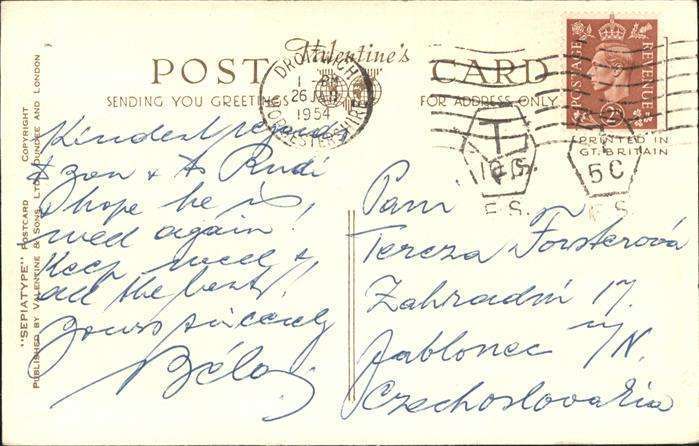 POST CARD
Valentine's
SENDING YOU GREETINGS
FOR ADDRESS ONLY
DROITWICH
1 PM
26 JAN
1954
WORCESTERSHIRE
POSTAGE
REVENUE
2D
PRINTED IN
GT. BRITAIN
T
10
F.S.
T
50
F.S.
Kindest regards
to you & to Rudi
I hope he is
well again!
Keep well &
all the best!
Yours sincerely
Béla
Paní
Tereza Forsterová
Zahradní 17.
Jablonec n/N.
Czechoslovakia
"SEPIATYPE" POSTCARD COPYRIGHT
PUBLISHED BY VALENTINE & SONS, LTD., DUNDEE AND LONDON